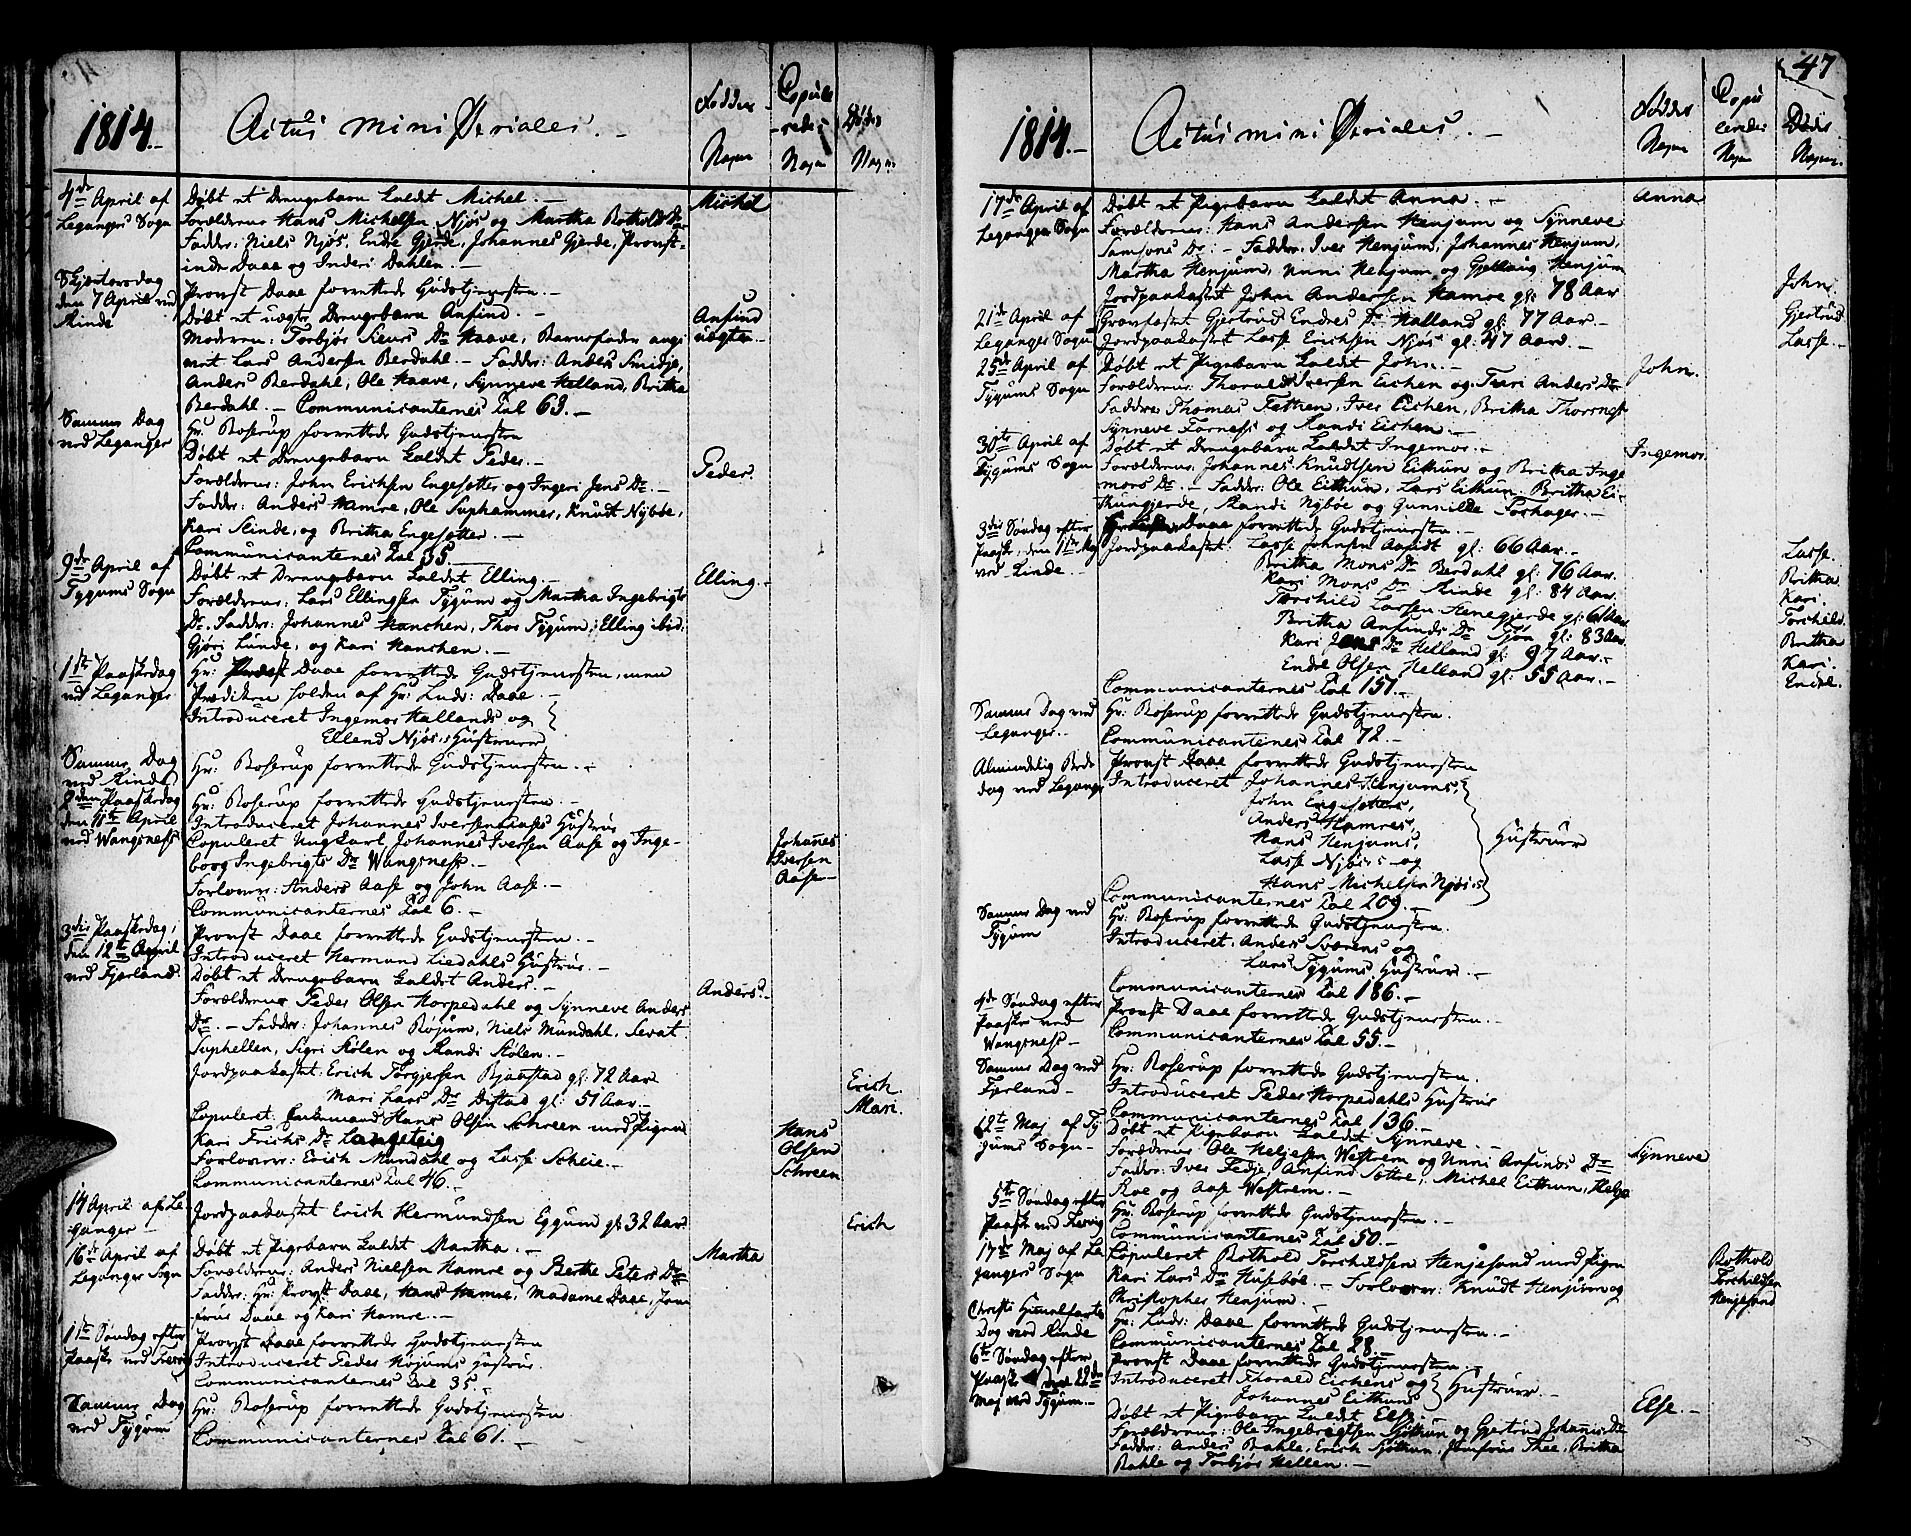 1814.
Actus miniSteriales.
Fødder Nafn
Copulerede Nafn
Døde Nafn
4de April af Leganger Sogn
Døbt et Drengebarn kaldet Michel. Michel
Forældrene: Hans Michelsen Njøs og Martha Botholds Dr
Faddr: Niels Njøs, Endre Gjerde, Johannes Gjerde, Provst-
inde Daae og Inderi Dahlen.
Skjertorsdag den 7 April ved Rinde
Provst Daae forrettede Gudstjenesten.
Døbt et uægte Drengebarn Anfind. Anfind uægte
Moderen: Torbjør Siurs Dr Haave, Barnefader angi-
vet Lars Andersen Berdahl. Faddr: Anders Smidje,
Anders Berdahl, Ole Haave, Synneve Helland, Britha
Berdahl. Communicanternes Tal 63.
Samme Dag ved Leganger
Hr: Boserup forrettede Gudstjenesten
Døbt et Drengebarn kaldet Peder. Peder.
Forældrene: John Erichsen Engesætter og Ingeri Jens Dr.
Faddr: Anders Hamre, Ole Suphammer, Knudt Nybøe,
Kari Slinde, og Britha Engesætter.
Communicanternes Tal 35.
9de April af Tygums Sogn
Døbt et Drengebarn kaldet Elling. Elling.
Forældrene: Lars Ellingsen Tygum og Martha Ingebrigts
Dr. Faddr: Johannes Hanchen, Thor Tygum, Elling ibid:
Gjøri Lunde, og Kari Hanchen.
1ste Paaskedag ved Leganger
Hr: Provst Daae forrettede Gudstjenesten, men
Prædiken holden af Hr: Luds: Daae.
Introduceret Ingemor Hallands og
Ellend Njøs's Hustruer
Samme Dag ved Rinde
Hr: Boserup forrettede Gudstjenesten.
2den Paaskedag den 11te April ved Wangsness
Hr: Boserup forrettede Gudstjenesten.
Introduceret Johannes Iversen Aases Hustrue
Copuleret Ungkarl Johannes Iversen Aase og Inge- Johanes
borg Ingebrigts Dr Wangsness. Iversen
Forlover: Anders Aase og John Aase. Aase
Communicanternes Tal 6.
3die Paaskedag, den 12te April ved Fjerland.
Provst Daae forrettede Gudstjenesten.
Introduceret Hermund Liedahls Hustrue.
Døbt et Drengebarn kaldet Anders. Anders.
Forældrene Peder Olsen Horpedahl og Synneve Anders
Dr. Faddr: Johannes Bøjum, Niels Mundahl, Sevat
Suphellen, Sigri Stølen og Randi Stølen.
Jordpaakastet: Erich Torgjersen Bjaastad gl: 72 Aar. Erich.
Mari Lars Dr Distad gl: 51 Aar. Mari.
Copuleret: Enkemand Hans Olsen Schreen med Pigen Hans
Kari Erichs Dr Langeteig Olsen
Forlover: Erich Mundahl og Lasse Scheie. Schreen
Communicanternes Tal 46.
14 April af Leganger
Jordpaakastet Erich Hermundsen Eggum gl: 32 Aar. Erich
16de April af Leganger Sogn
Døbt et Pigebarn kaldet Martha. Martha
Forældrene: Anders Nielsen Hamre og Berthe Peters Dr
Faddr: Hr: Provst Daae, Hans Hamre, Madame Daae, Jom
frue Daae og Kari Hamre.
1ste Søndag efter Paaske ved Feerig
Provst Daae forrettede Gudstjenesten
Introduceret Peder Nøjums Hustrue.
Communicanternes Tal 35.
Samme Dag ved Tygum
Hr: Boserup forrettede Gudstjenesten
Communicanternes Tal 61.
47
1814.
Actus miniSteriales.
Fødder Nafn
Copulerede Nafn
Døde Nafn.
17de April af Leganger Sogn
Døbt et Pigebarn kaldet Anna. Anna
Forældrene: Hans Andersen Henjum og Synneve
Samsons Dr: Faddr: Iver Henjum, Johannes Henjum,
Martha Henjum, Unni Henjum og Gjellaug Henjum
Jordpaakastet John Andersen Hamre gl: 78 Aar John.
21de April af Leganger Sogn
Gravfæstet Gjertrud Endres Dr Halland gl: 77 Aar. Gjertrud
Jordpaakastet Lasse Erichsen Njøs gl: 47 Aar. Lasse.
25de April af Tygums Sogn
Døbt et Pigebarn kaldet John. John.
Forældrene: Thorald Iversen Eichen og Kari Anders Dr
Faddre Thomas Fethen, Iver Eichen, Britha Thorness
Synneve Farness og Randi Eichen.
30te April af Tygums Sogn
Døbt et Drengebarn kaldet Ingemor. Ingemor.
Forældrene: Johannes Knudtsen Eithun og Britha Inge
mors Dr. Faddr: Ole Eithun, Lars Eithun, Britha Ei-
thungjerde, Randi Nybøe og Gunnilde Forhager.
3die Søndag efter Paaske, den 1ste Maj ved Rinde
Daae forrettede Gudstjenesten.
Jordpaakastet: Lasse Johnsen Amidt gl: 66 Aar. Lasse.
Britha Mons Dr Berdahl gl: 76 Aar. Britha
Kari Mons Dr Rinde gl: 84 Aar. Kari.
Torchild Larsen Henegjerde gl: 61 Aar Torchild.
Britha Anfinds Dr Tjøn gl: 83 Aar Britha
Kari Jens Dr Helland gl: 97 Aar. Kari.
Endre Olsen Helland gl: 55 Aar. Endre.
Communicanternes Tal 151.
Samme Dag ved Leganger.
Hr: Boserup forrettede Gudstjenesten.
Communicanternes Tal 72.
Almindelig Bededag ved Leganger
Provst Daae forrettede Gudstjenesten
Introduceret Johannes Henjums,
John Engesetters,
Anders Hamres,
Hans Henjums, Hustruer
Lasse Njøs's og
Hans Michelsen Njøs's
Communicanternes Tal 209.
Samme Dag ved Tygum
Hr: Boserup forrettede Gudstjenesten.
Introduceret: Anders Sværens og
Lars Tygums Hustruer.
Communicanternes Tal 186.
4de Søndag efter Paaske ved Wangsness.
Provst Daae forrettede Gudstjenesten.
Communicanternes Tal 55.
Samme Dag ved Fjerland.
Hr: Boserup forrettede Gudstjenesten.
Introduceret Peder Horpedahls Hustrue
Communicanternes Tal 136.
12te Maj af Tygums Sogn
Døbt et Pigebarn kaldet Synneve. Synneve
Forældrene Ole Heljesen Westrem og Unni Anfinds Dr
Faddr: Iver Fedje, Anfind Sættre, Michel Eithun, Helga
Roe og Aase Westrem.
5te Søndag efter Paaske ved Feerig
Hr: Boserup forrettede Gudstjenesten.
Communicanternes Tal 50.
17de Maj af Leganger Sogn
Copuleret Bothold Torchildsen Henjesand med Pigen Bothold
Kari Lars Dr Husebøe. Forlover: Knudt Henjum og Torchildsen
Christopher Henjum. Henjesand
Christi Himmelfarts Dag ved Rinde
Hr: Luds: Daae forrettede Gudstjenesten.
Communicanternes Tal 28.
6te Søndag efter Paaske den 22de Maj ved Tygum.
Provst Daae forrettede Gudstjenesten.
Introduceret Thorald Eichens og
Johannes Eithuns Hustruer.
Døbt et Pigebarn kaldet Else. Else.
Forældrene: Ole Ingebrigtsen Sjøthun og Gjertrud Johannes Dr
Faddr: Anders Bahle, Erich Sjøthun, Jomfrue Thee, Britha
Bahle og Torbjør Hellen.